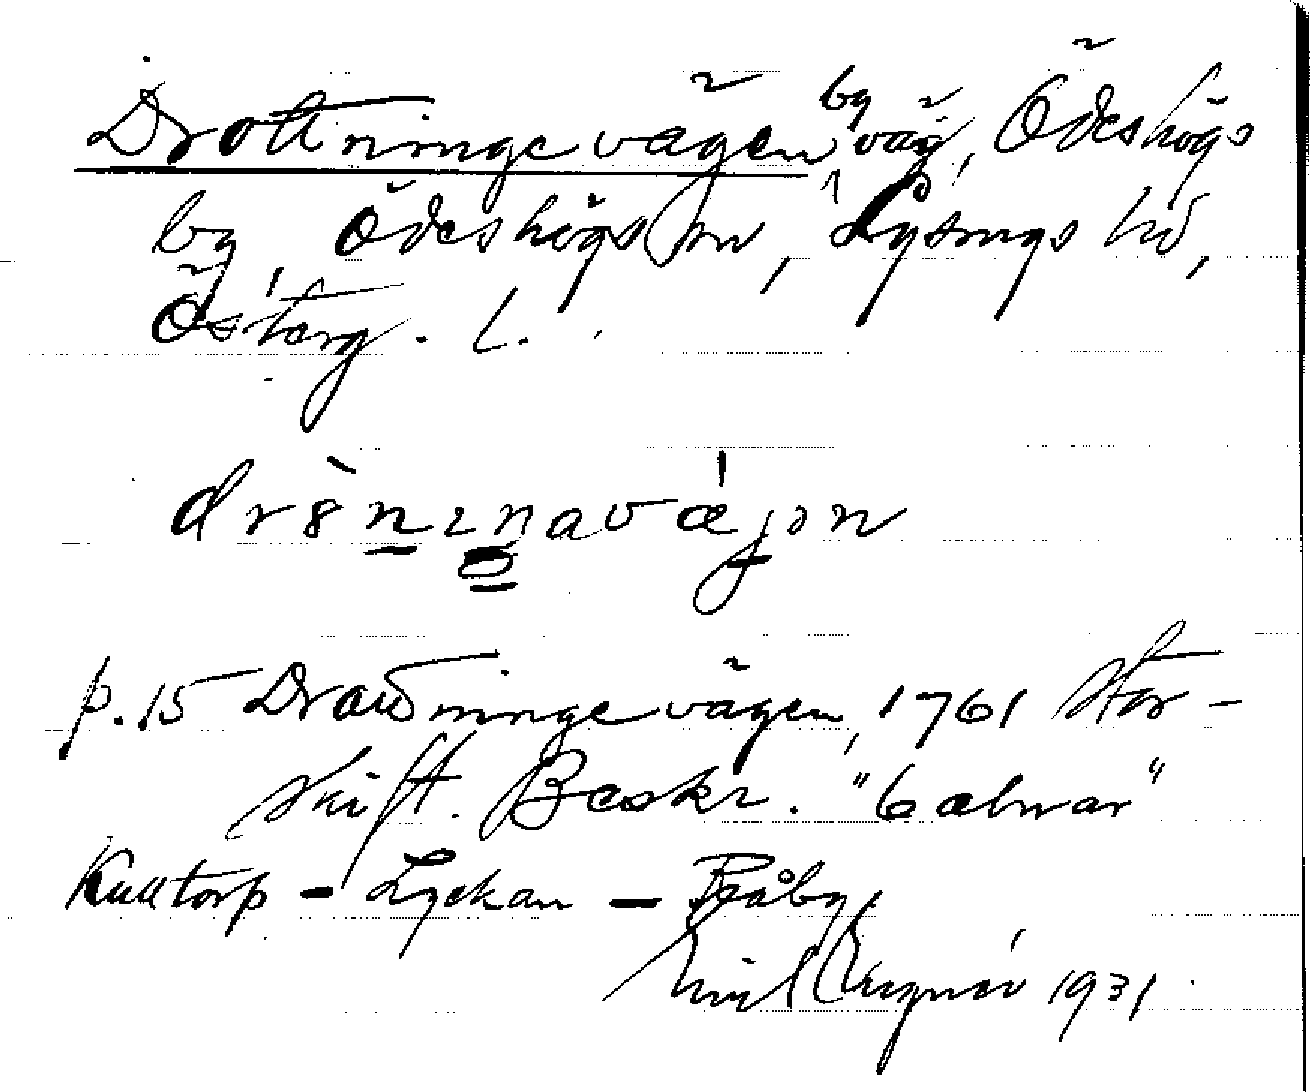 Drottningevägen, byväg, Ödeshögs
by, Ödeshögs sn, Lysings hd,
Österg. l.
p. 15 Drottningevägen, 1761 Stor-
skift. Beskr. "6 alnar"
Kulltorp - Lyckan -Råby,
Emil 1931